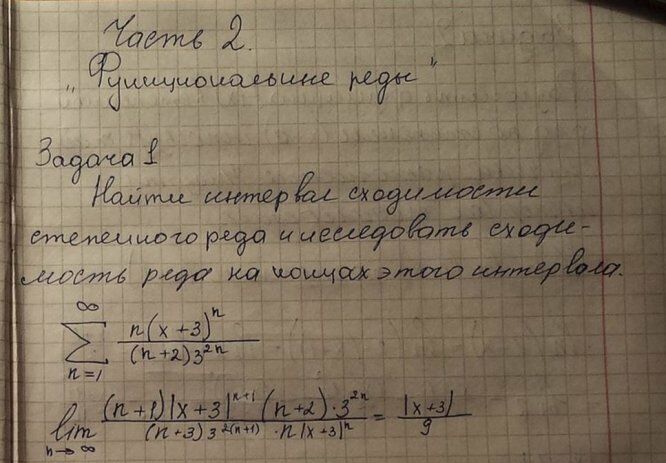 Часть 2.
"Функциональные ряды"
Задача 1
Найти интервал сходимости
степенного ряда и исследовать сходи-
мость ряда на концах этого интервала.
∑_{n=1}^{∞} n(x+3)^n / (n+2)3^{2n}
lim_{n→∞} (n+1)|x+3|^{n+1} (n+2)·3^{2n} / (n+3)3^{2(n+1)}·n|x+3|^n = |x+3| / 9